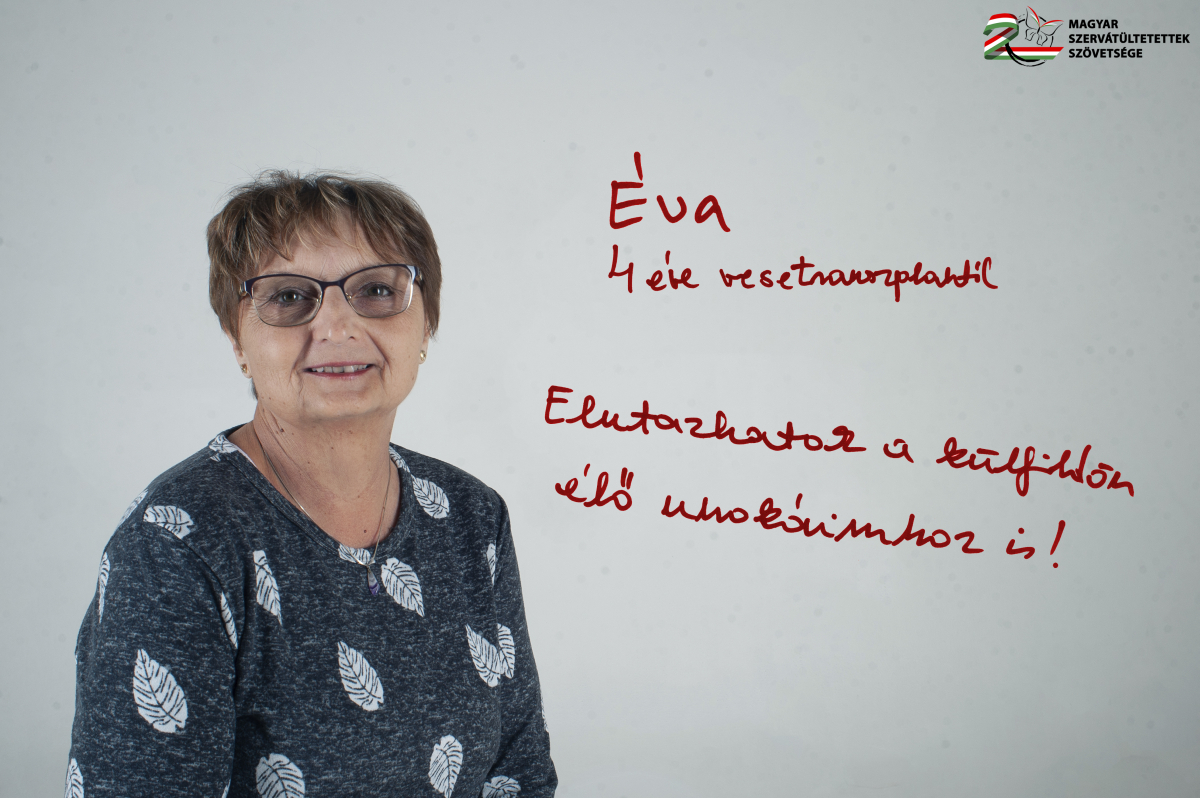 MAGYAR
SZERVÁTÜLTETETTEK
SZÖVETSÉGE
Éva
4 éve vesetranszplantált
Elutazhatok a külföldön
élő unokáimhoz is!